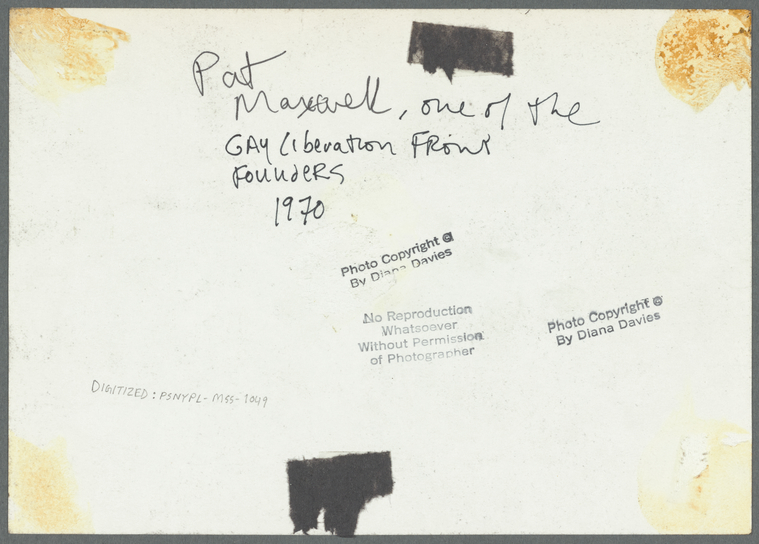 Pat
Maxwell, one of the
GAY Liberation FRONT
FOUNDERS
1970
Photo Copyright ©
By Diana Davies
No Reproduction
Whatsoever
Without Permission
of Photographer
Photo Copyright ©
By Diana Davies
DIGITIZED: PSNYPL-MSS-1049